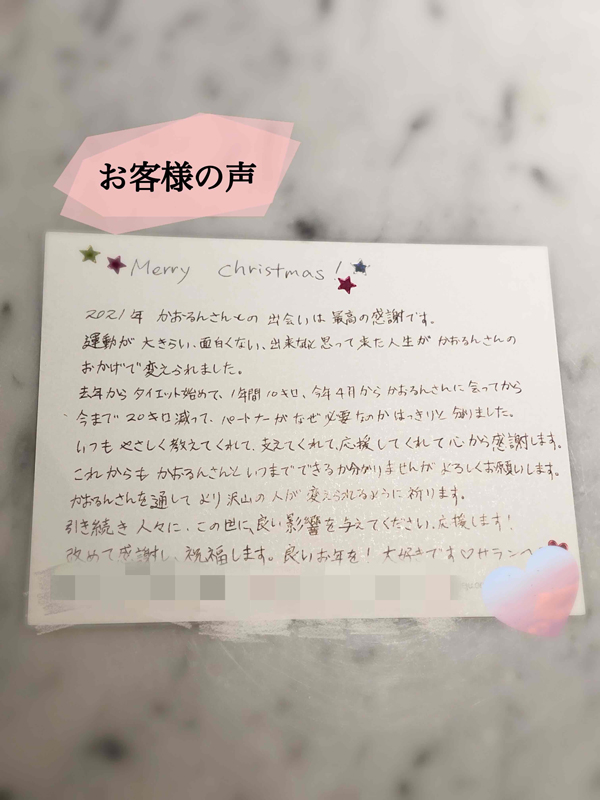 お客様の声
Merry christmas!
2021年 かおるんさんとの 出会いは 最高の感謝です。
運動が 大きらい、面白くない、出来ないと思って来た人生が かおるんさんの
おかげで変えられました。
去年から ダイエット始めて、1年間 10キロ、今年4月から かおるんさんに会ってから
今まで 20キロ減って、パートナーがなぜ必要なのか はっきりと知りました。
いつも やさしく教えてくれて、支えてくれて、応援してくれて心から感謝します。
これからも かおるんさんと いつまでできるか分かりませんが よろしくお願いします。
かおるんさんを通して より沢山の人が 変えられるように 祈ります。
引き続き 人々に、この世に、良い影響を与えてください、応援します!
改めて感謝し、祝福します。良いお年を! 大好きです♡サランヘ